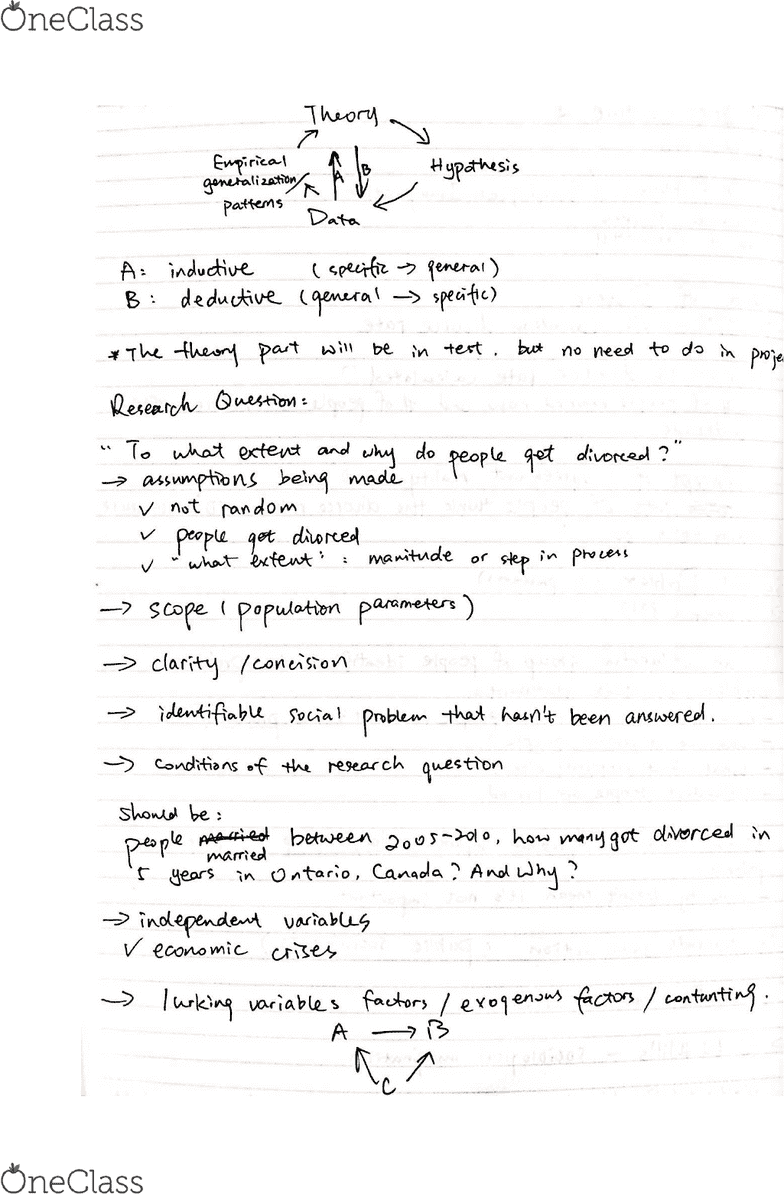 OneClass
Theory
Empirical
generalization
patterns
A
B
Hypothesis
Data
A: inductive (specific → general)
B: deductive (general → specific)
* The theory part will be in test. but no need to do in proje
Research Question:
"To what extent and why do people get divorced?"
→ assumptions being made
✓ not random
✓ people get divorced
✓ "what extent": manitude or step in process
→ scope (population parameters)
→ clarity /concision
→ identifiable social problem that hasn't been answered.
→ conditions of the research question
Should be:
people married between 2005-2010, how many got divorced in
married
5 years in Ontario, Canada? And Why?
→ independent variables
✓ economic crises
→ lurking variables factors / exogenous factors / contunting.
A → B
C
OneClass